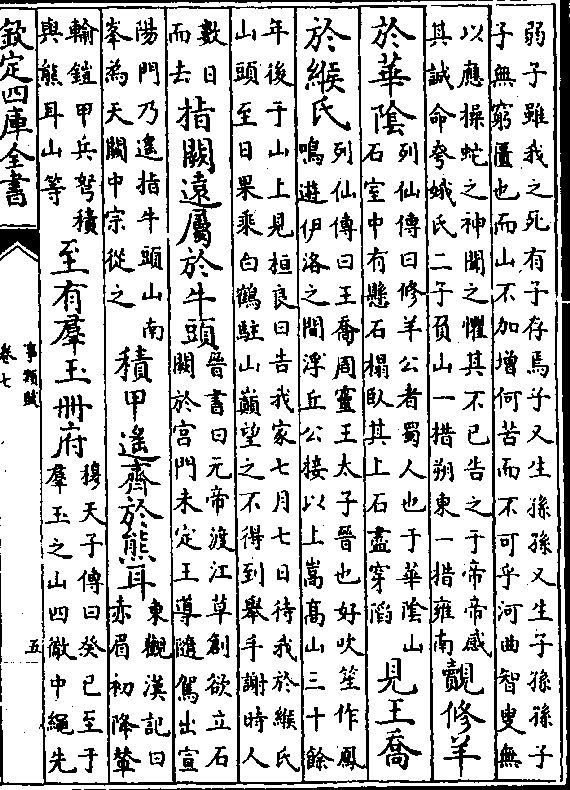 弱子雖我之死有子存焉子又生孫孫又生子孫孫子
子無窮匱也而山不加增何苦而不可乎河曲智叟無
以應操蛇之神聞之懼其不已告之于帝帝感
其誠命夸娥氏二子負山一措朔東一措雍南
覿修羊
於華陰
列仙傳曰修羊公者蜀人也于華陰山
石室中有懸石榻臥其上石盡穿陷
見王喬
於緱氏
列仙傳曰王喬周靈王太子晉也好吹笙作鳳
鳴遊伊洛之間浮丘公接以上嵩高山三十餘
年後于山上見桓良曰告我家七月七日待我於緱氏
山頭至日果乘白鶴駐山巔望之不得到舉手謝時人
數日
而去
指闕遠屬於牛頭
晉書曰元帝渡江草創欲立石
闕於宮門未定王導隨駕出宣
陽門乃遙指牛頭山南
峯為天闕中宗從之
積甲遙齊於熊耳
東觀漢記曰
赤眉初降輦
輸鎧甲兵弩積
與熊耳山等
至有羣玉冊府
穆天子傳曰癸巳至于
羣玉之山四徹中繩先
欽定四庫全書
事類賦
卷七
五